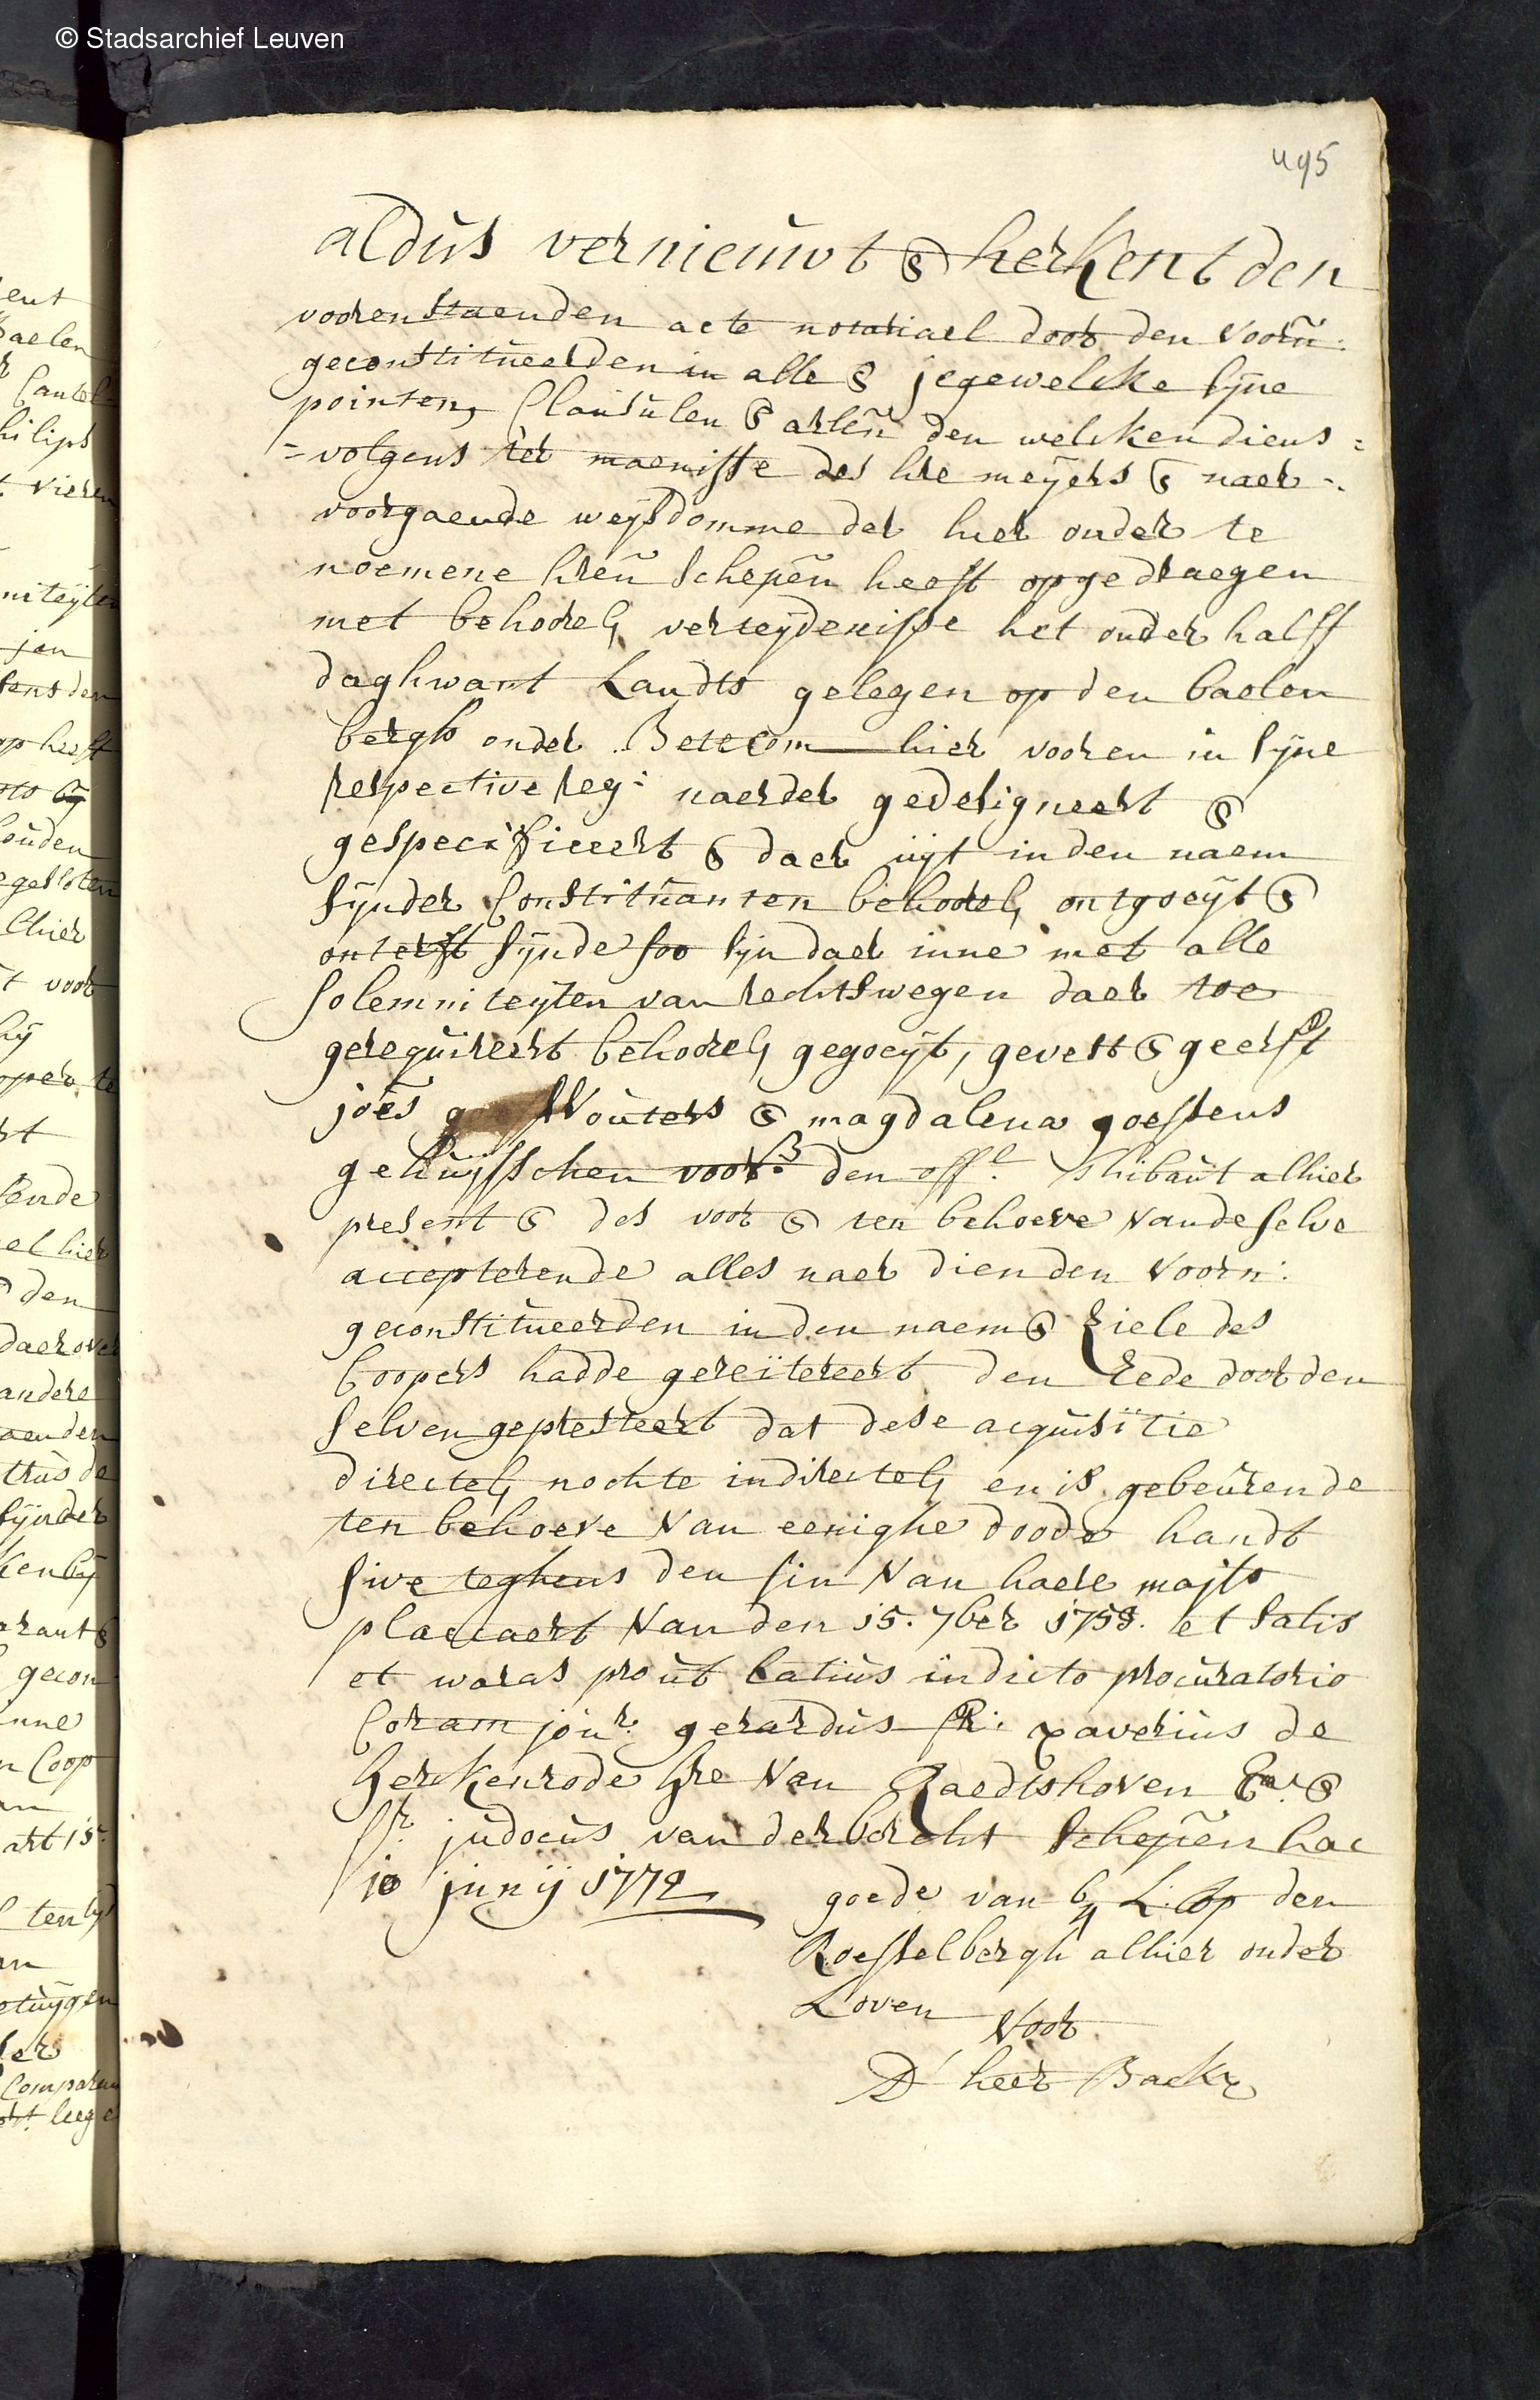 © Stadsarchief Leuven
495
aldus vernieuwt & herkent den
voorenstaenden acte notariael door den voorñ:
geconstitueerden in alle & jegewelcke sijne
pointen, Clausulen & arlen den welcken diens =
=volgens ter maenisse des hre meyers & naer
voorgaende weysdomme der hier onder te
noemene hren schepen heeft opgedraegen
met behorel verteydenisse het onder halff
daghwant Landts gelegen op den baelen
bergh onder Betecom hier vooren in sijne
respective reg: naerder gedesigneert &
gespecificeert & daer uyt inden naem
sijnder Constituanten behorel ontgoeyt &
onterft sijnde soo sijn daer inne met alle
solemniteyten van rechtswegen daer toe
gerequireert behorel gegoeyt, gevest & geerft
joēs Wouters & magdalena goessens
gehuysschen voor den off.l Thibaut alhier
present & des voor & ten behoeve vande selve
accepterende alles naer dien den voorn:
geconstitueerden inden naem & Ziele des
Coopers hadde gereïtereert den Eede door den
selven gepresteert dat dese acquisitie
directel nochte indirectel en is gebeurende
ten behoeve van eenighe doode handt
sive teghens den sin van haere majts
placcaert van den 15. 7ber 1753. et satis
et waras prout latius in dicto procuratorio
Coram jour. gerardus fr: xaverius de
herckenrode hre van Raedtshoven &
Sr. judocus van der borcht schepen hac
10 junij 1772
goede van by L. op den
Roesselbergh alhier onder
Loven
voor
D' heer Backx